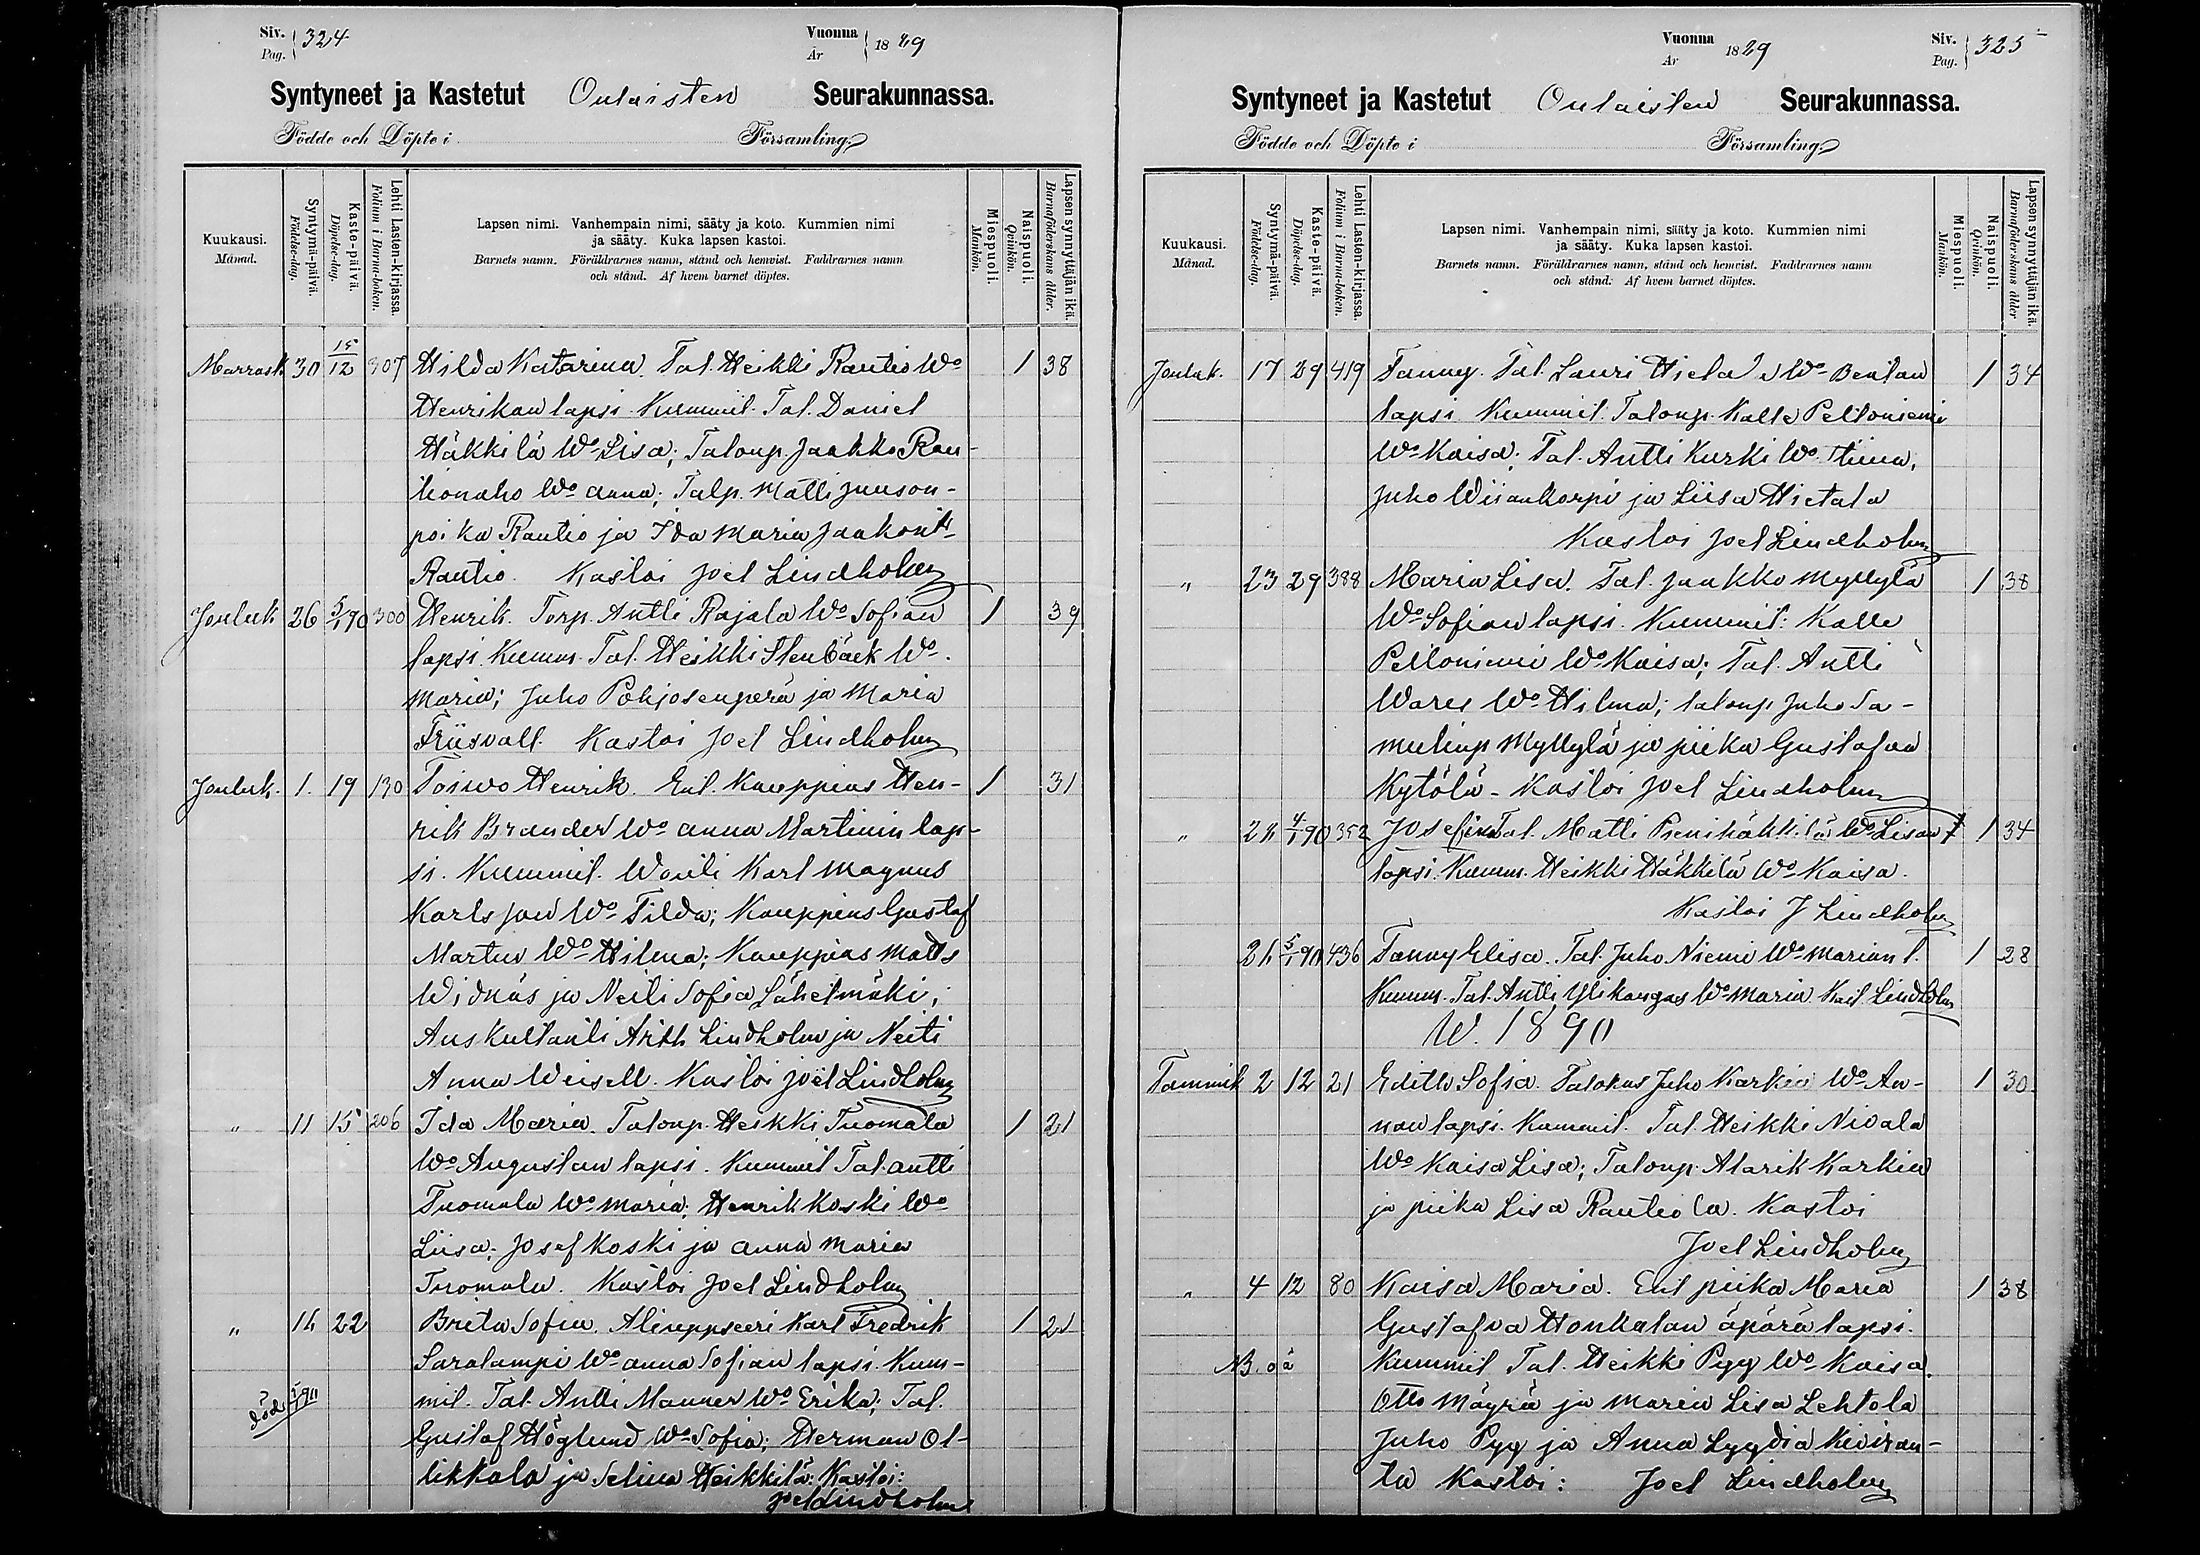 Siv. 324
Pag.
Vuonna 1889
År
Syntyneet ja Kastetut Oulaisten Seurakunnassa.
Födde och Döpte i Församling.
Kuukausi.
Månad.
Syntymä-päivä.
Födelse-dag.
Kaste-päivä.
Döpelse-dag.
Lehti Lasten-kirjassa.
Folium i Barna-boken.
Lapsen nimi. Vanhempain nimi, sääty ja koto. Kummien nimi
ja sääty. Kuka lapsen kastoi.
Barnets namn. Föräldrarnes namn, stånd och hemvist. Faddrarnes namn
och stånd. Af hvem barnet döptes.
Miespuoli.
Mankön.
Naispuoli.
Qvinkön.
Lapsen synnyttäjän ikä.
Barnaföderskans ålder.
Marrask. 30 15/12 307 Hilda Katarina. Tal. Heikki Rautio Wo 1 38
Henrikan lapsi. Kummit. Tal. Daniel
Häkkilä Wo Lisa; Taloup. Jaakko Rau-
tionaho Wo Anna; Talp. Matti Juuson-
poika Rautio ja Ida Maria Jaakont.
Rautio. Kastoi Joel Lindholm
Jouluk. 26 5/1 90 300 Henrik. Torp. Antti Rajala Wo Sofian 1 39
lapsi. Kumm. Tal. Heikki Stenbäck Wo
Maria; Juho Pohjosenperä ja Maria
Friisvall. Kastoi Joel Lindholm
Jouluk. 1. 19 130 Toiwo Henrik. Ent. Kauppias Hen- 1 31
rik Brander Wo Anna Martinin lap-
si. Kummit. Wouti Karl Magnus
Karlsson Wo Tilda; Kauppias Gustaf
Martus Wo Hilma; Kauppias Matts
Widnäs ja Neiti Sofia Lähetmäki;
Auskultanti Arth. Lindholm ja Neiti
Anna Weisell. Kastoi Joel Lindholm
" 11 15 206 Ida Maria. Taloup. Heikki Tuomala 1 21
Wo Augustan lapsi. Kummit Tal. Antti
Tuomala Wo Maria; Henrik Koski Wo
Liisa; Josef Koski ja Anna Maria
Tuomala. Kastoi Joel Lindholm
" 14 22 Brita Sofia. Aliuppseeri Karl Fredrik 1 21
Saralampi Wo Anna Sofian lapsi. Kum-
mit. Tal. Antti Manner Wo Erika; Tal.
död
Gustaf Höglund Wo Sofia; Herman Ol-
likkala ja Selina Heikkilä. Kastoi:
Joel Lindholm
Vuonna 1889
År
Siv. 325
Pag.
Syntyneet ja Kastetut Oulaisten Seurakunnassa.
Födde och Döpte i Församling.
Kuukausi.
Månad.
Syntymä-päivä.
Födelse-dag.
Kaste-päivä.
Döpelse-dag.
Lehti Lasten-kirjassa.
Folium i Barna-boken.
Lapsen nimi. Vanhempain nimi, sääty ja koto. Kummien nimi
ja sääty. Kuka lapsen kastoi.
Barnets namn. Föräldrarnes namn, stånd och hemvist. Faddrarnes namn
och stånd. Af hvem barnet döptes.
Miespuoli.
Mankön.
Naispuoli.
Qvinkön.
Lapsen synnyttäjän ikä.
Barnaföderskans ålder
Jouluk. 17 29 419 Fanny. Tal. Lauri Wo Beatan 1 34
lapsi. Kummit. Taloup. Kalle Pelloniemi
Wo Kaisa; Tal. Antti Kurki Wo Tiina,
Juho Wiirankorpi ja Liisa Hietala
Kastoi Joel Lindholm
" 23 29 388 Maria Lisa. Tal. Jaakko Myllylä 1 38
Wo Sofian lapsi. Kummit: Kalle
Pelloniemi Wo Kaisa; Tal. Antti
Wares Wo Hilma; taloup Juho Sa-
mulinp. Myllylä ja piika Gustafva
Kytölä. Kastoi Joel Lindholm
" 24 4/1 90 352 Josefina Tal. Matti Pienihäkkilä Wo Lisan 1 34
lapsi. Kumm. Heikki Häkkilä Wo Kaisa.
Kastoi J Lindholm
24 5/1 90 436 Fanny Elisa. Tal. Juho Niemi Wo Marian l. 1 28
Kumm. Tal. Antti Ylikangas Wo Maria. Kast. Lindholm
W. 1890
Tammik 2 12 21 Edith Sofia. Talokas Juho Karkia Wo An- 1 30
nan lapsi. Kummit. Tal. Heikki Nivala
Wo Kaisa Lisa; Taloup. Alarik Karkia
ja piika Lisa Rautiola. Kastoi
Joel Lindholm
" 4 12 80 Kaisa Maria. Ent piika Maria 1 38
Gustafva Honkalan äpärälapsi.
NB. oä Kummit Tal. Heikki Pyy Wo Kaisa.
Otto Mäyrä ja Maria Lisa Lehtola
Juho Pyy ja Anna Lyydia Kiviran-
ta Kastoi: Joel Lindholm